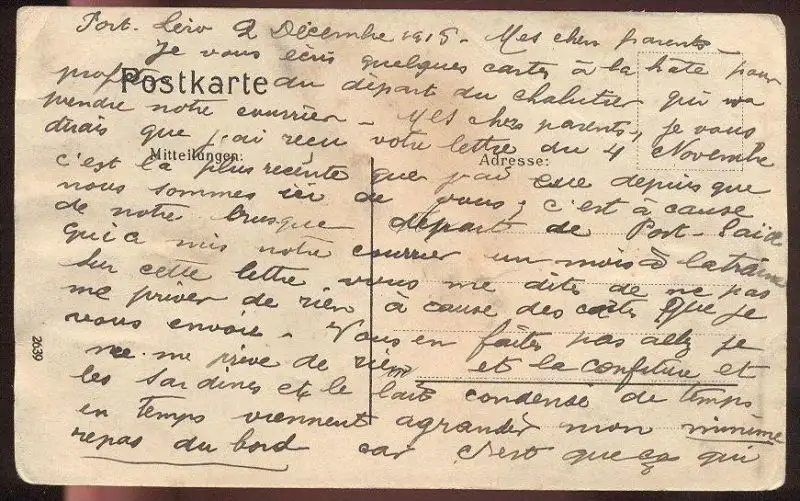 Port. Léro 2 Décembre 1915 - Mes chers parents -
Je vous écris quelques cartes à la hâte pour
profiter du départ du chalutier qui va
Postkarte
prendre notre courrier - Mes chers parents, je vous
dirais que j'ai reçu votre lettre du 4 Novembre
Mitteilungen:
Adresse:
c'est la plus récente que j'ai eue depuis que
nous sommes ici de vous, c'est à cause
de notre brusque départ de Port-Saïd
qui a mis notre courrier un mois à la traîne
Sur cette lettre vous me dites de ne pas
me priver de rien à cause des cartes que je
vous envoie - Vous en faîtes pas allez je
ne me prive de rien et la confiture et
les sardines et le lait condensé de temps
en temps viennent agrandir mon minime
repas du bord car c'est que ce qui
2039